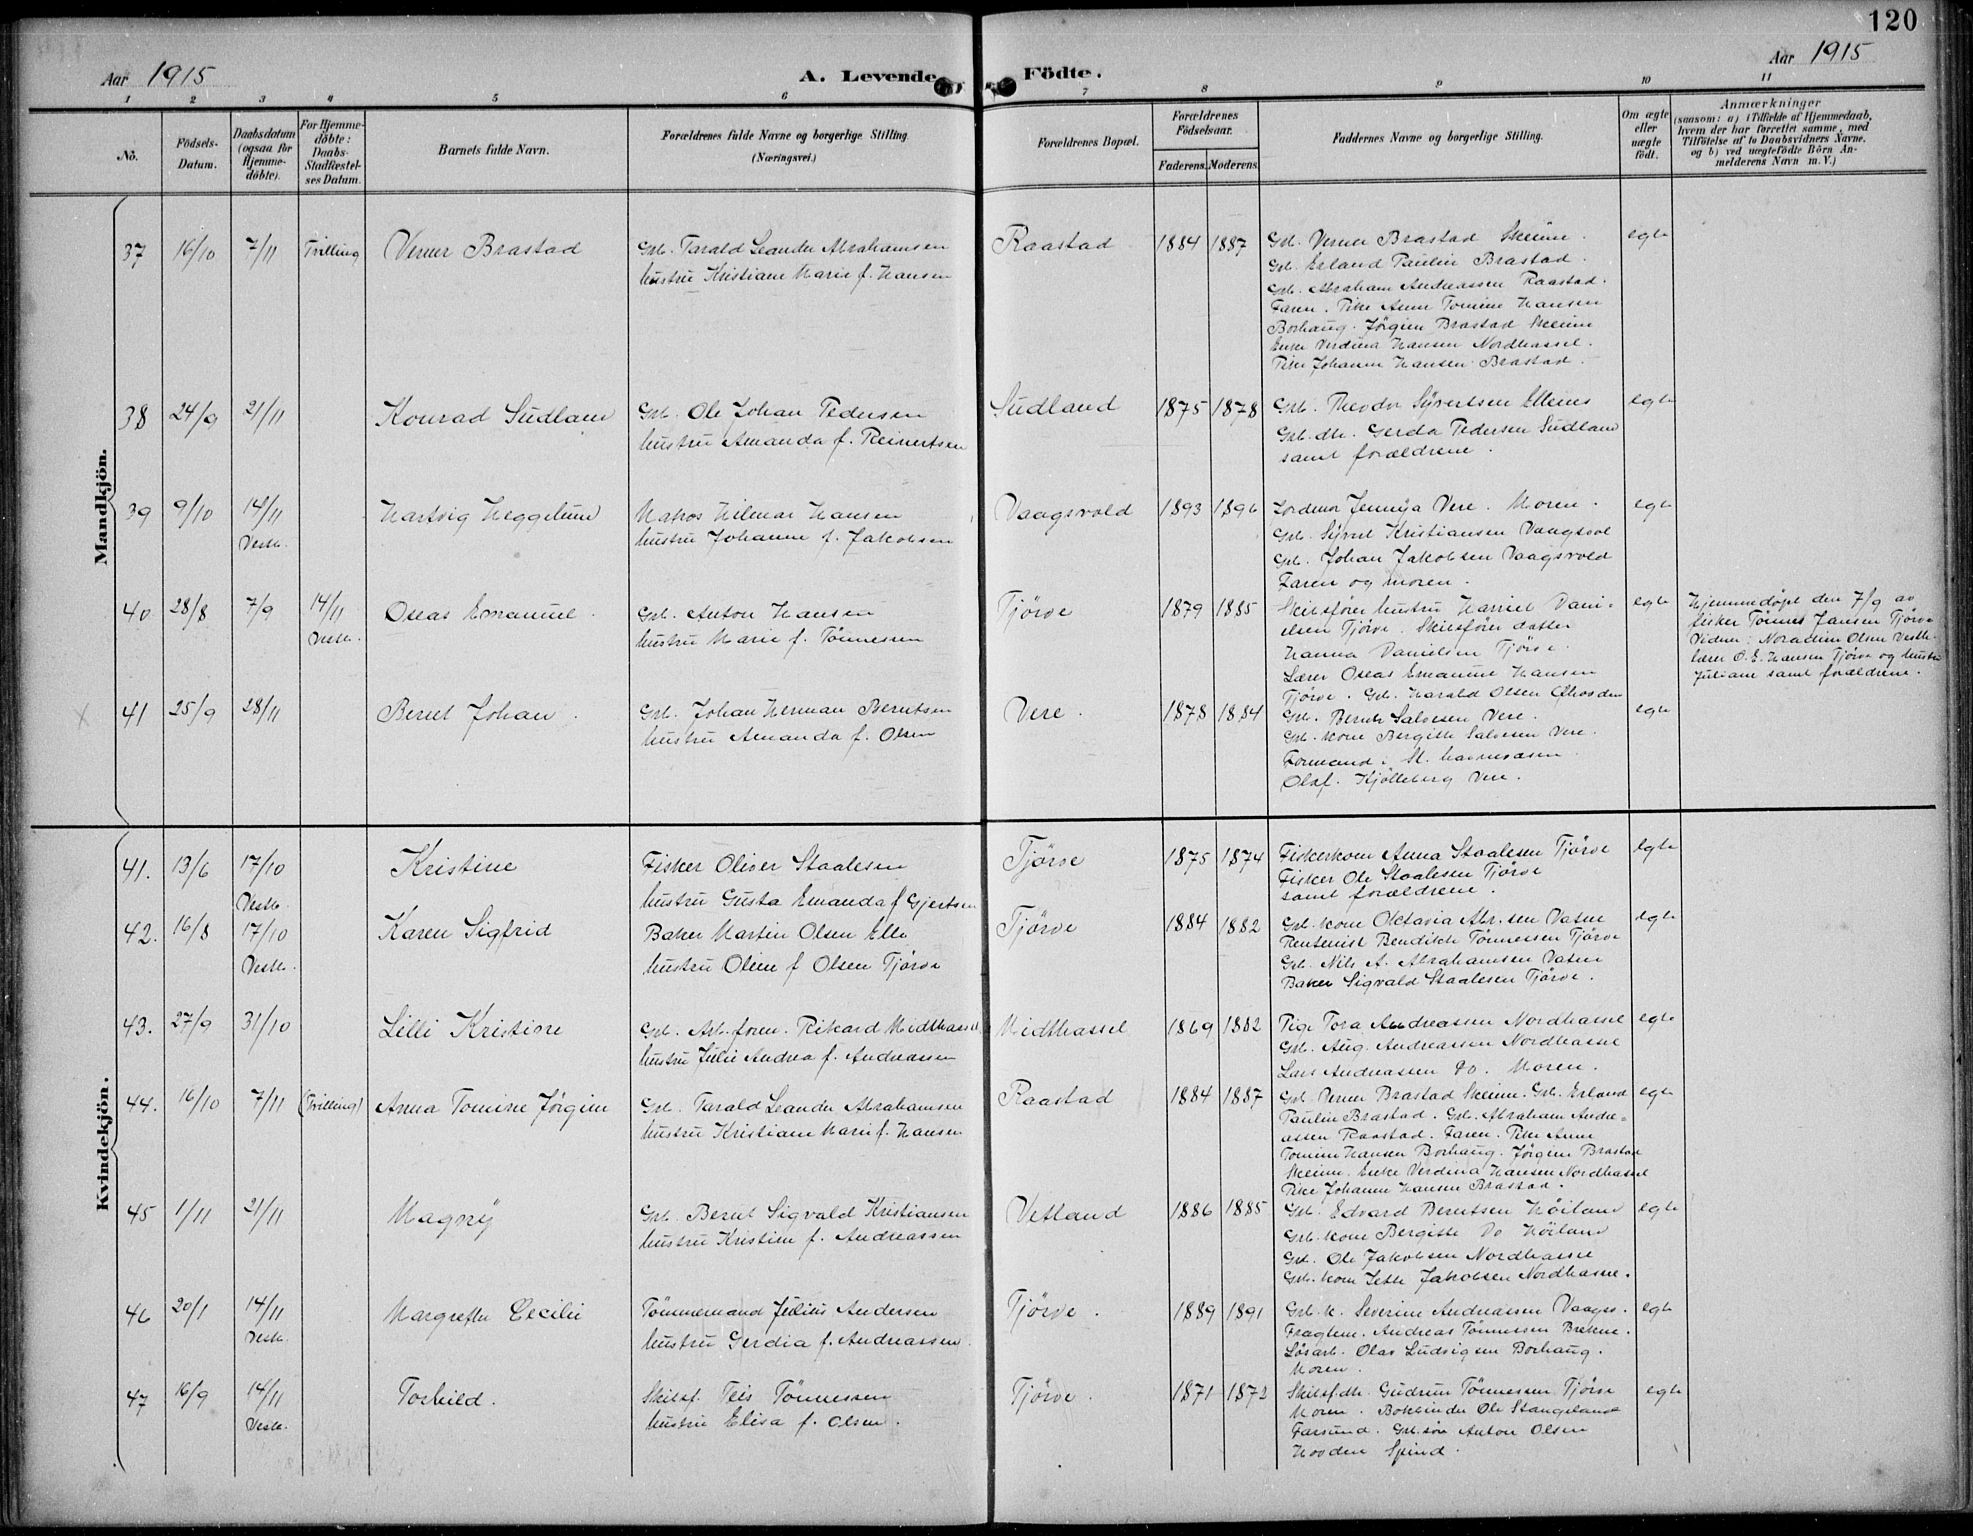 120
Aar 1915
A. Levende Födte.
Aar 1915
1 2 3 4 5 6 7 8 9 10 11
No.
Födsels-
Datum.
Daabsdatum
(ogsaa for
Hjemme-
döbte).
For Hjemme-
döbte:
Daabs-
Stadfæstel-
ses Datum.
Barnets fulde Navn.
Forældrenes fulde Navne og borgerlige Stilling
(Næringsvei.)
Forældrenes Bopæl.
Forældrenes
Födselsaar.
Faderens. Moderens.
Faddernes Navne og borgerlige Stilling.
Om ægte
eller
uægte
födt.
Anmærkninger
(saasom: a) i Tilfælde af Hjemmedaab,
hvem der har forrettet samme, med
Tilföielse af to Daabsvidners Navne.
og b) ved uægtefödte Börn An-
melderens Navn m. V.)
Mandkjön.
37 16/10 7/11 Tvilling Verner Brastad
Grb. Tarald Leander Abrahamsen
hustru Kristiane Marie f. Hansen
Raastad 1884 1887
Grb. Verner Brastad Skeime.
Grb. Erland Paulin Brastad.
Grb. Abraham Andreassen Raastad.
Faren. Pike Anne Tomine Hansen
Borhaug. Jørgine Brastad Skeime
Enke Verdina Hansen Nordhassel.
Pike Johanne Hansen Brastad.
egte
38 24/9 21/11 Konrad Sudland
Grb. Ole Johan Pedersen
hustru Amanda f. Reinertsen
Sudland 1875 1878
Grb. Theodor Syvertsen Ellenes
Grb. dtr. Gerda Pedersen Sudland
samt forældrene.
egte
39 9/10 14/11 Hartvig Heggelund
Vestb.
Matros Hilmar Hansen
hustru Johanne f. Jakobsen
Vaagsvold 1893 1896
Jordmor Jennya Vere. Moren.
Grb. Syvert Kristiansen Vaagsvol
Grb. Johan Jakobsen Vaagsvold
Faren og moren.
egte
40 28/8 7/9 14/11 Oseas Emanuel.
Vestb.
Grb. Anton Hansen
hustru Marie f. Tönnessen
Tjörve 1879 1885
Skibsfører hustru Harriet Dani-
elsen Tjörve. Skibsfører datter
Hanna Danielsen Tjörve.
Lærer Oseas Emanuel Hansen
Tjörve. Grb. Harald Olsen
egte
Hjemmedøpt den 7/9 av
fisker Tönnes Jansen Tjörve
Vidner: Olsen Vestb.
lærer O. E. Hansen Tjörve og hustru
Juliane samt forældrene.
41 25/9 28/11 Berent Johan.
Grb. Johan Herman Berntsen
hustru Amanda f. Olsen
Vere. 1878 1884
Grb. Bernt Salvesen Vere.
Grb. kone Bergitte Salvesen Vere.
Formand i St.
Olaf. Kjölleberg Vere.
egte
Kvindekjön.
41. 13/6 17/10 Kristine
Vestb.
Fisker Oliver Staalesen
hustru Gusta Emanda f Gjertsen
Tjörve 1875 1874
Fiskerkone Anna Staalesen Tjörve
Fisker Ole Staalesen Tjörve
samt forældrene.
egte
42. 16/8 17/10 Karen Sigfrid
Vestb.
Baker Martin Olsen Elle
hustru Oline f Olsen Tjörve
Tjörve 1884 1882
Grb. kone Oktavia Abr.sen Vatne
Rentenist Bendikte Tönnessen Tjörve
Grb. Nils A. Abrahamsen Vatne
Baker Sigvald Staalesen Tjörve.
egte
43. 27/9 31/10 Lilli Kristine
Grb. Arb. form. Rikard Midthassel
hustru Julie Andrea f. Andreassen
Midthassel 1869 1882
Pige Tora Andreassen Nordhassel
Grb. Aug. Andreassen Nordhassel
Lars Andreassen Do. Moren.
egte
44. 16/10 7/11 (Tvilling) Anna Tomine Jörgine
Grb. Tarald Leander Abrahamsen
hustru Kristiane Marie f. Hansen
Raastad 1884 1887
Grb. Verner Brastad Skeime. Grb. Erland
Paulin Brastad. Grb. Abraham Andre-
assen Raastad. Faren. Pike Anne
Tomine Hansen Borhaug. Jörgine Brastad
Skeime. Enke Verdina Hansen Nordhassel
Pike Johanne Hansen Brastad.
egte
45 1/11 21/11 Magny
Grb. Bernt Sigvald Kristiansen
hustru Kristine f. Andreassen
Vetland 1886 1885
Grb. Edvard Berntsen Höiland
Grb. kone Bergitte Do Höiland
Grb. Ole Jakobsen Nordhassel
Grb. kone Jette Jakobsen Nordhassel.
egte
46 20/1 14/11 Margrethe Cecilie
Vestb.
Tömmermand Julius Andersen
hustru Gerdia f. Andreassen.
Tjörve. 1889 1891
Grb. k. Severine Andreassen Vaagsv.
Fragtem. Andreas Tönnessen Brekne.
Lösarb. Olav Ludvigsen Borhaug.
Moren.
egte
47 16/9 14/11 Torhild.
Vestb.
Skibsf. Teis Tönnessen
hustru Elisa f. Olsen.
Tjörve. 1871 1872
Skibsf. dtr. Gudrun Tönnessen Tjörve
Moren. Bokbinder Ole Stangeland
Farsund. Grb. søn Anton Olsen
Hovden Spind.
egte